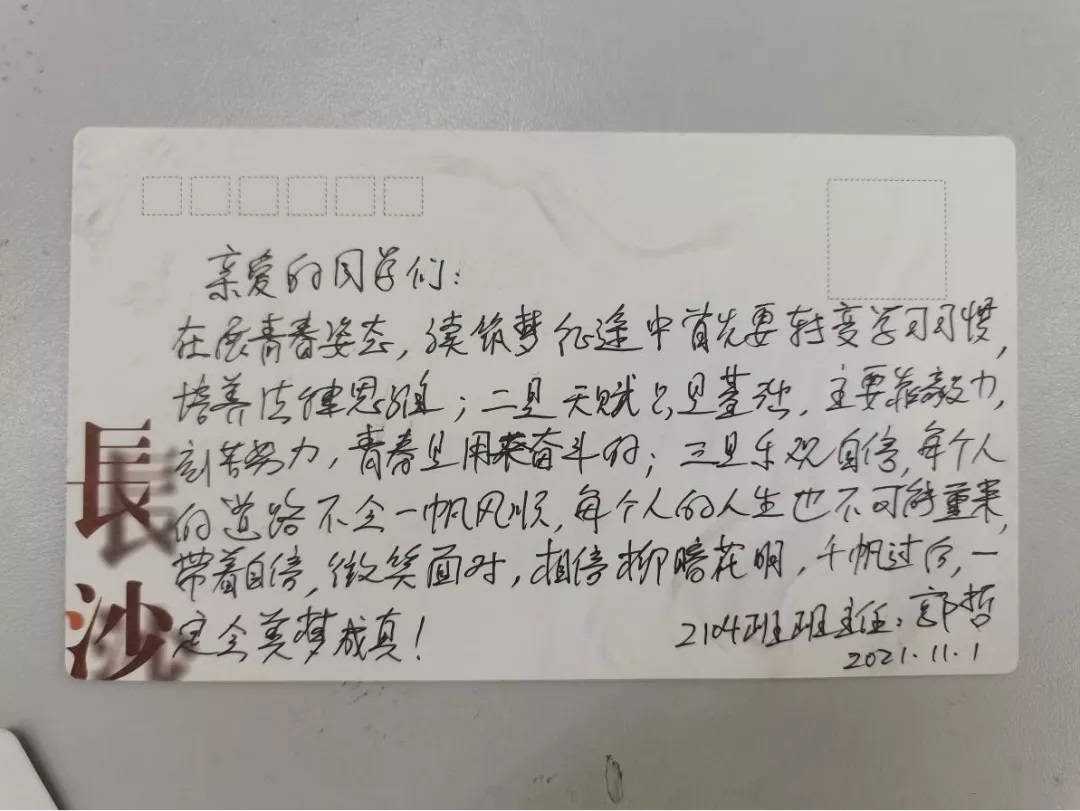 亲爱的同学们:
在展青春姿态,续筑梦征途中首先要转变学习习惯,
培养法律思维;二是天赋只是基础,主要靠毅力,
刻苦努力,青春是用来奋斗的;三是乐观自信,每个人
的道路不会一帆风顺,每个人的人生也不可能重来,
带着自信,微笑面对,相信柳暗花明,千帆过后,一
定会美梦成真!
2104班班主任:郭哲
2021.11.1
長沙